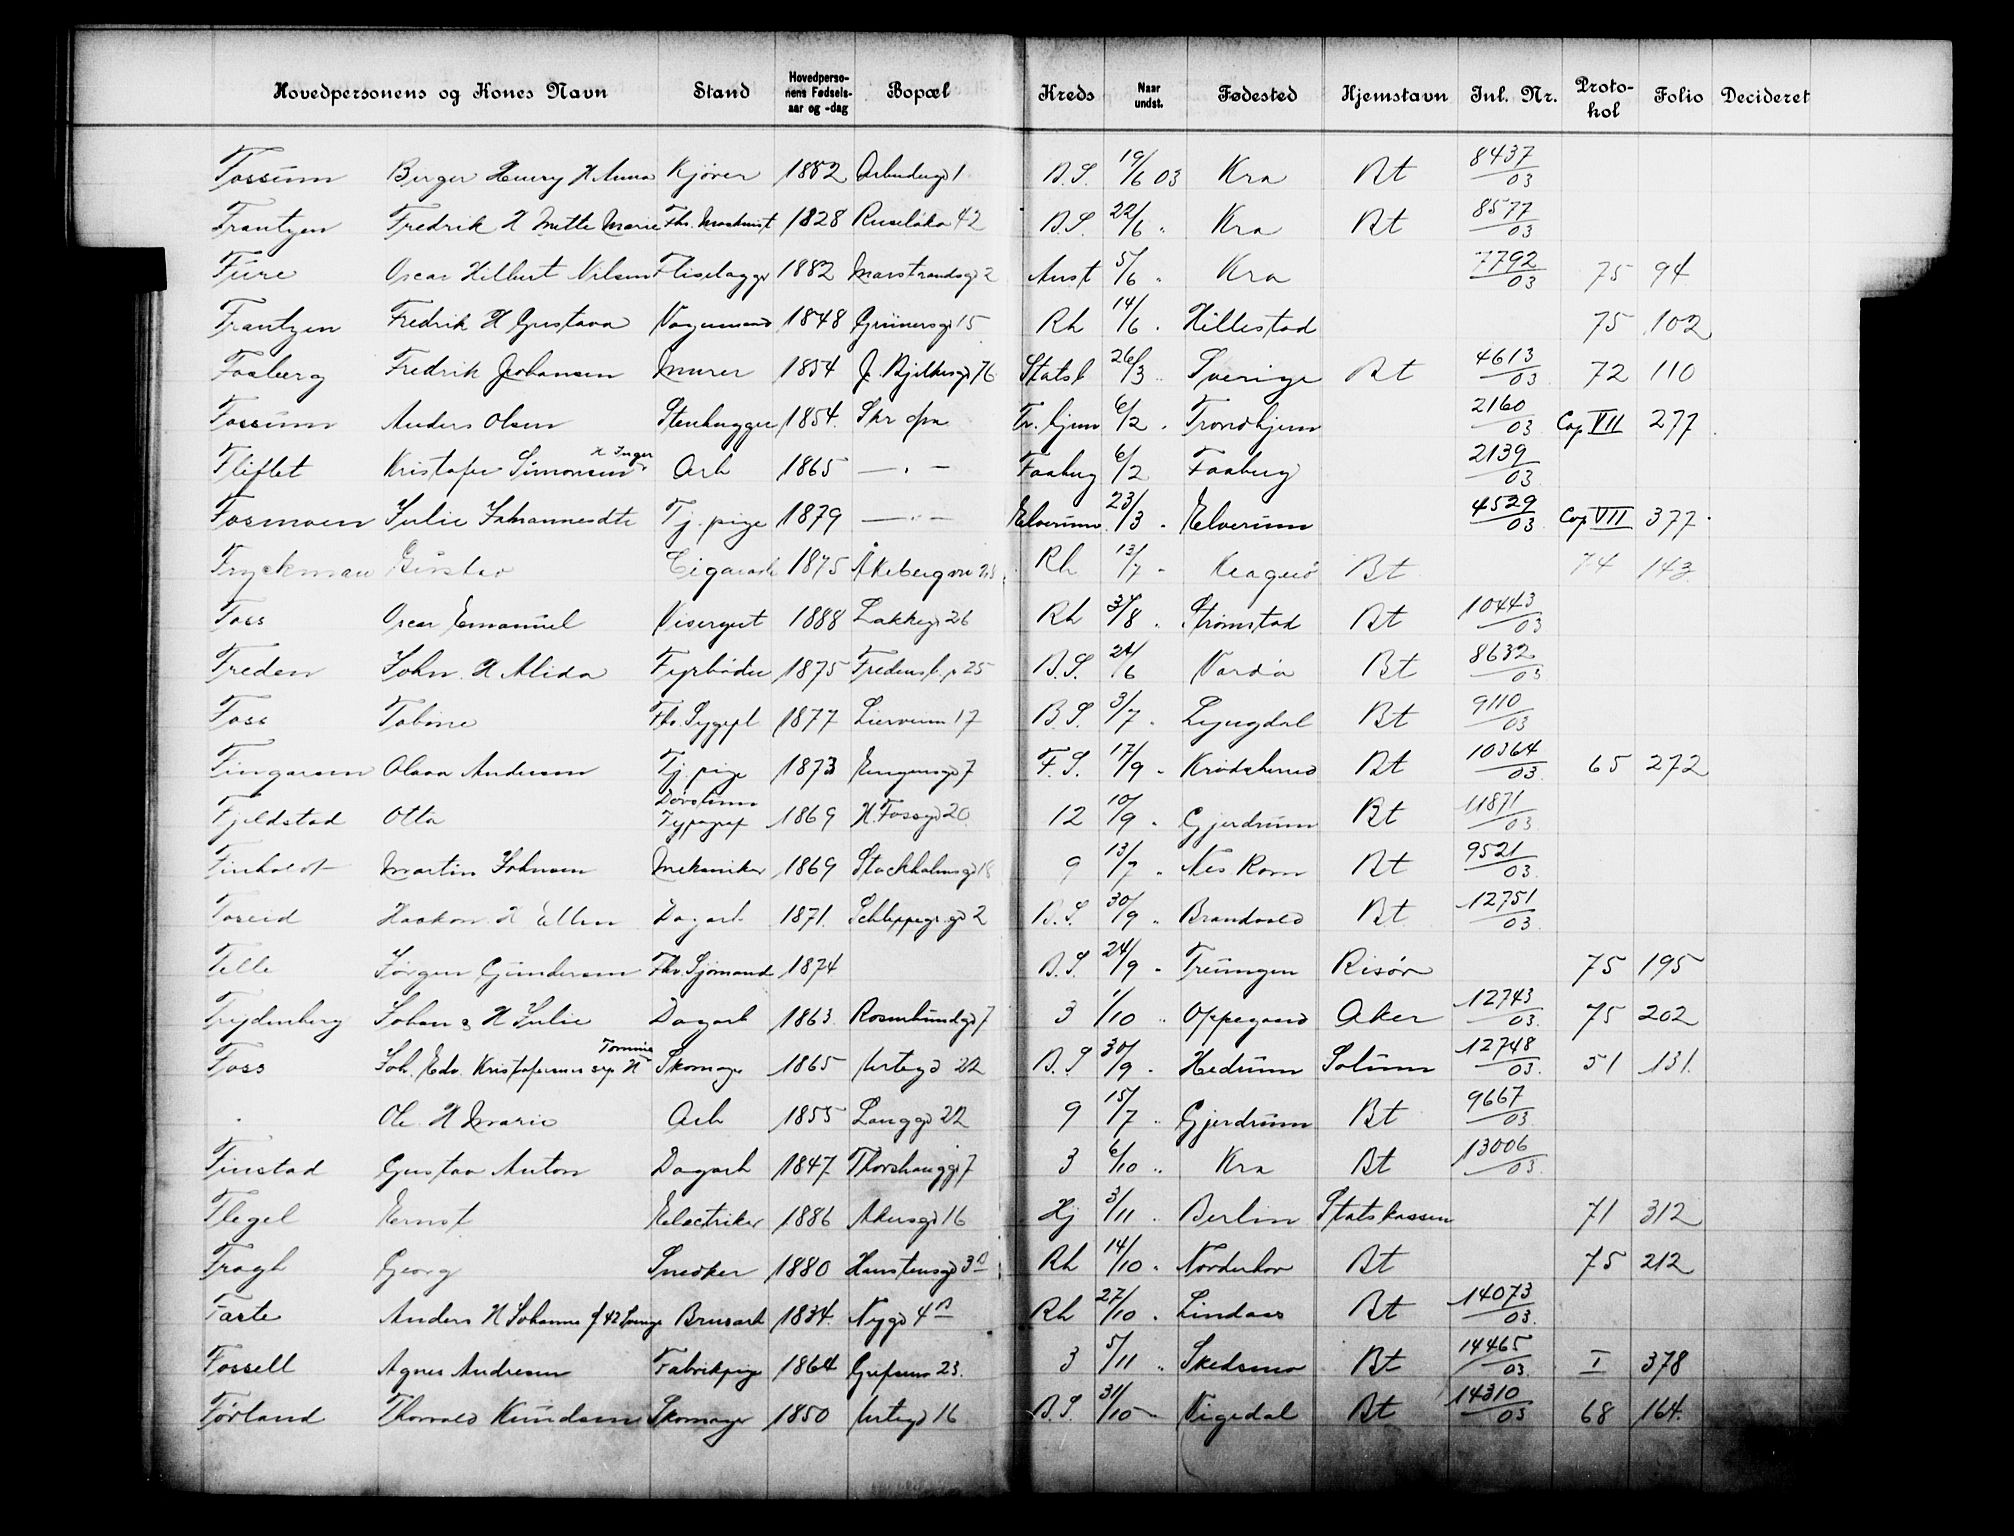 Hovedpersonens og Kones Navn Stand Hovedpersonens Fødselsaar og -dag Bopæl Kreds Naar undst. Fødested Hjemstavn Inl. Nr. Protokol Folio Decideret
Fossum Berger Henry H Anna Kjører 1882 1 B.S. 19/6 03 Kra Bt 8437/03
Frantzen Fredrik H Mette Marie Fhv. Maskinist 1828 Ruseløka 42 B.S. 22/6 " Kra Bt 8577/03
Fure Oscar Hilbert Nilsen Fliselægger 1882 Marstrandsgd 2 Aust 5/6 " Kra 7792/03 75 94
Frantzen Fredrik H Gustava Vognmand 1848 Grünersgd 15 Rh 14/6 " Hillestad 75 102
Fosberg Fredrik Johansen Murer 1854 J. Bjelkesgd 76 Statsb 26/3 " Sverige Bt 4613/03 72 110
Fossum Anders Olsen Stenhugger 1854. Tr. hjem 6/2 " Trondhjem 2160/03 Cop VII 277
Fliflet Kristofer Simonsen H Inger Arb 1865 — " — Faaberg 6/2 Faaberg 2139/03
Fosmoen Julie Johannesdtr Tj. pige 1879 — " — Elverum 23/3 " Elverum 4529/03 Cop VII 377
Fryckman Gustav Cigararb 1875 Åkebergvn Rh 13/7 " Kragerø Bt 74 143
Foss Oscar Emanuel Visergut 1888 Lakkegd 26 Rh 31/8 " Strømstad Bt 10443/03
Freden John H Alida Fyrbøder 1875 Fredensb. 25 B.S. 24/6 Vardø Bt 8632/03
Foss Tobine Fhv. Sygepl 1877 Liervein 17 B.S. 3/7 " Lyngdal Bt 9110/03
Fingarsen Olava Andersen Tj. pige 1873 7 F.S. 17/9 " Krødsherred Bt 10364/03 65 272
Fjeldstad Otto Døvstum Typograf 1869 H. Fossgd 20 12 10/9 " Gjerdrum Bt 11871/03
Finholdt Martin Johnsen Mekaniker 1869 Stockholmsgd 18 9 13/7 " Nes Rom Bt 9521/03
Foseid Haakon H Ellen Dagarb 1871. Schleppegr. gd 2 B.S. 30/9 " Brandvold Bt 12751/03
Felle Jørgen Gundersen Fhv. Sjømand 1874 B.S. 24/9 " Treungen Risør 75 195
Frydenberg Johan H Julie Dagarb 1863. Rosenlundgd 7 3 1/10 " Oppegaard Aker 12743/03 75 202
Foss Joh. Edv. Kristofersen sep H Tomine Skomager 1865 Urtegd 22 B.S 30/9 " Hedrum Solum 12748/03 51 131
" Ole H Marie Arb 1855 Langgd 22 9 15/7 " Gjerdrum Bt 9667/03
Finstad Gustav Anton Dagarb 1847 Thorshauggd 7 3 6/10 " Kra Bt 13006/03
Flegel Ernst Electriker 1886 Akersgd 16 Hj 3/11 " Berlin Statskassen 71 312
Frogh Georg Snedker 1880 Hanstensgd 3 B Rh 14/10 " Norderhov Bt 75 212
Faste Anders H Johanne f 42 Sverige Brusarb 1834. Nygd 4 B Rh 27/10 " Lindaas Bt 14073/03
Fossell Agnes Andresen Fabrikpige 1864 Grefsenv 23. 3 5/11 " Skedsmo Bt 14465/03 I 378
Førland Thorvald Knudsen Skomager 1850 Urtegd 16 B.S. 31/10 Vigedal Bt 14310/03 68 164.